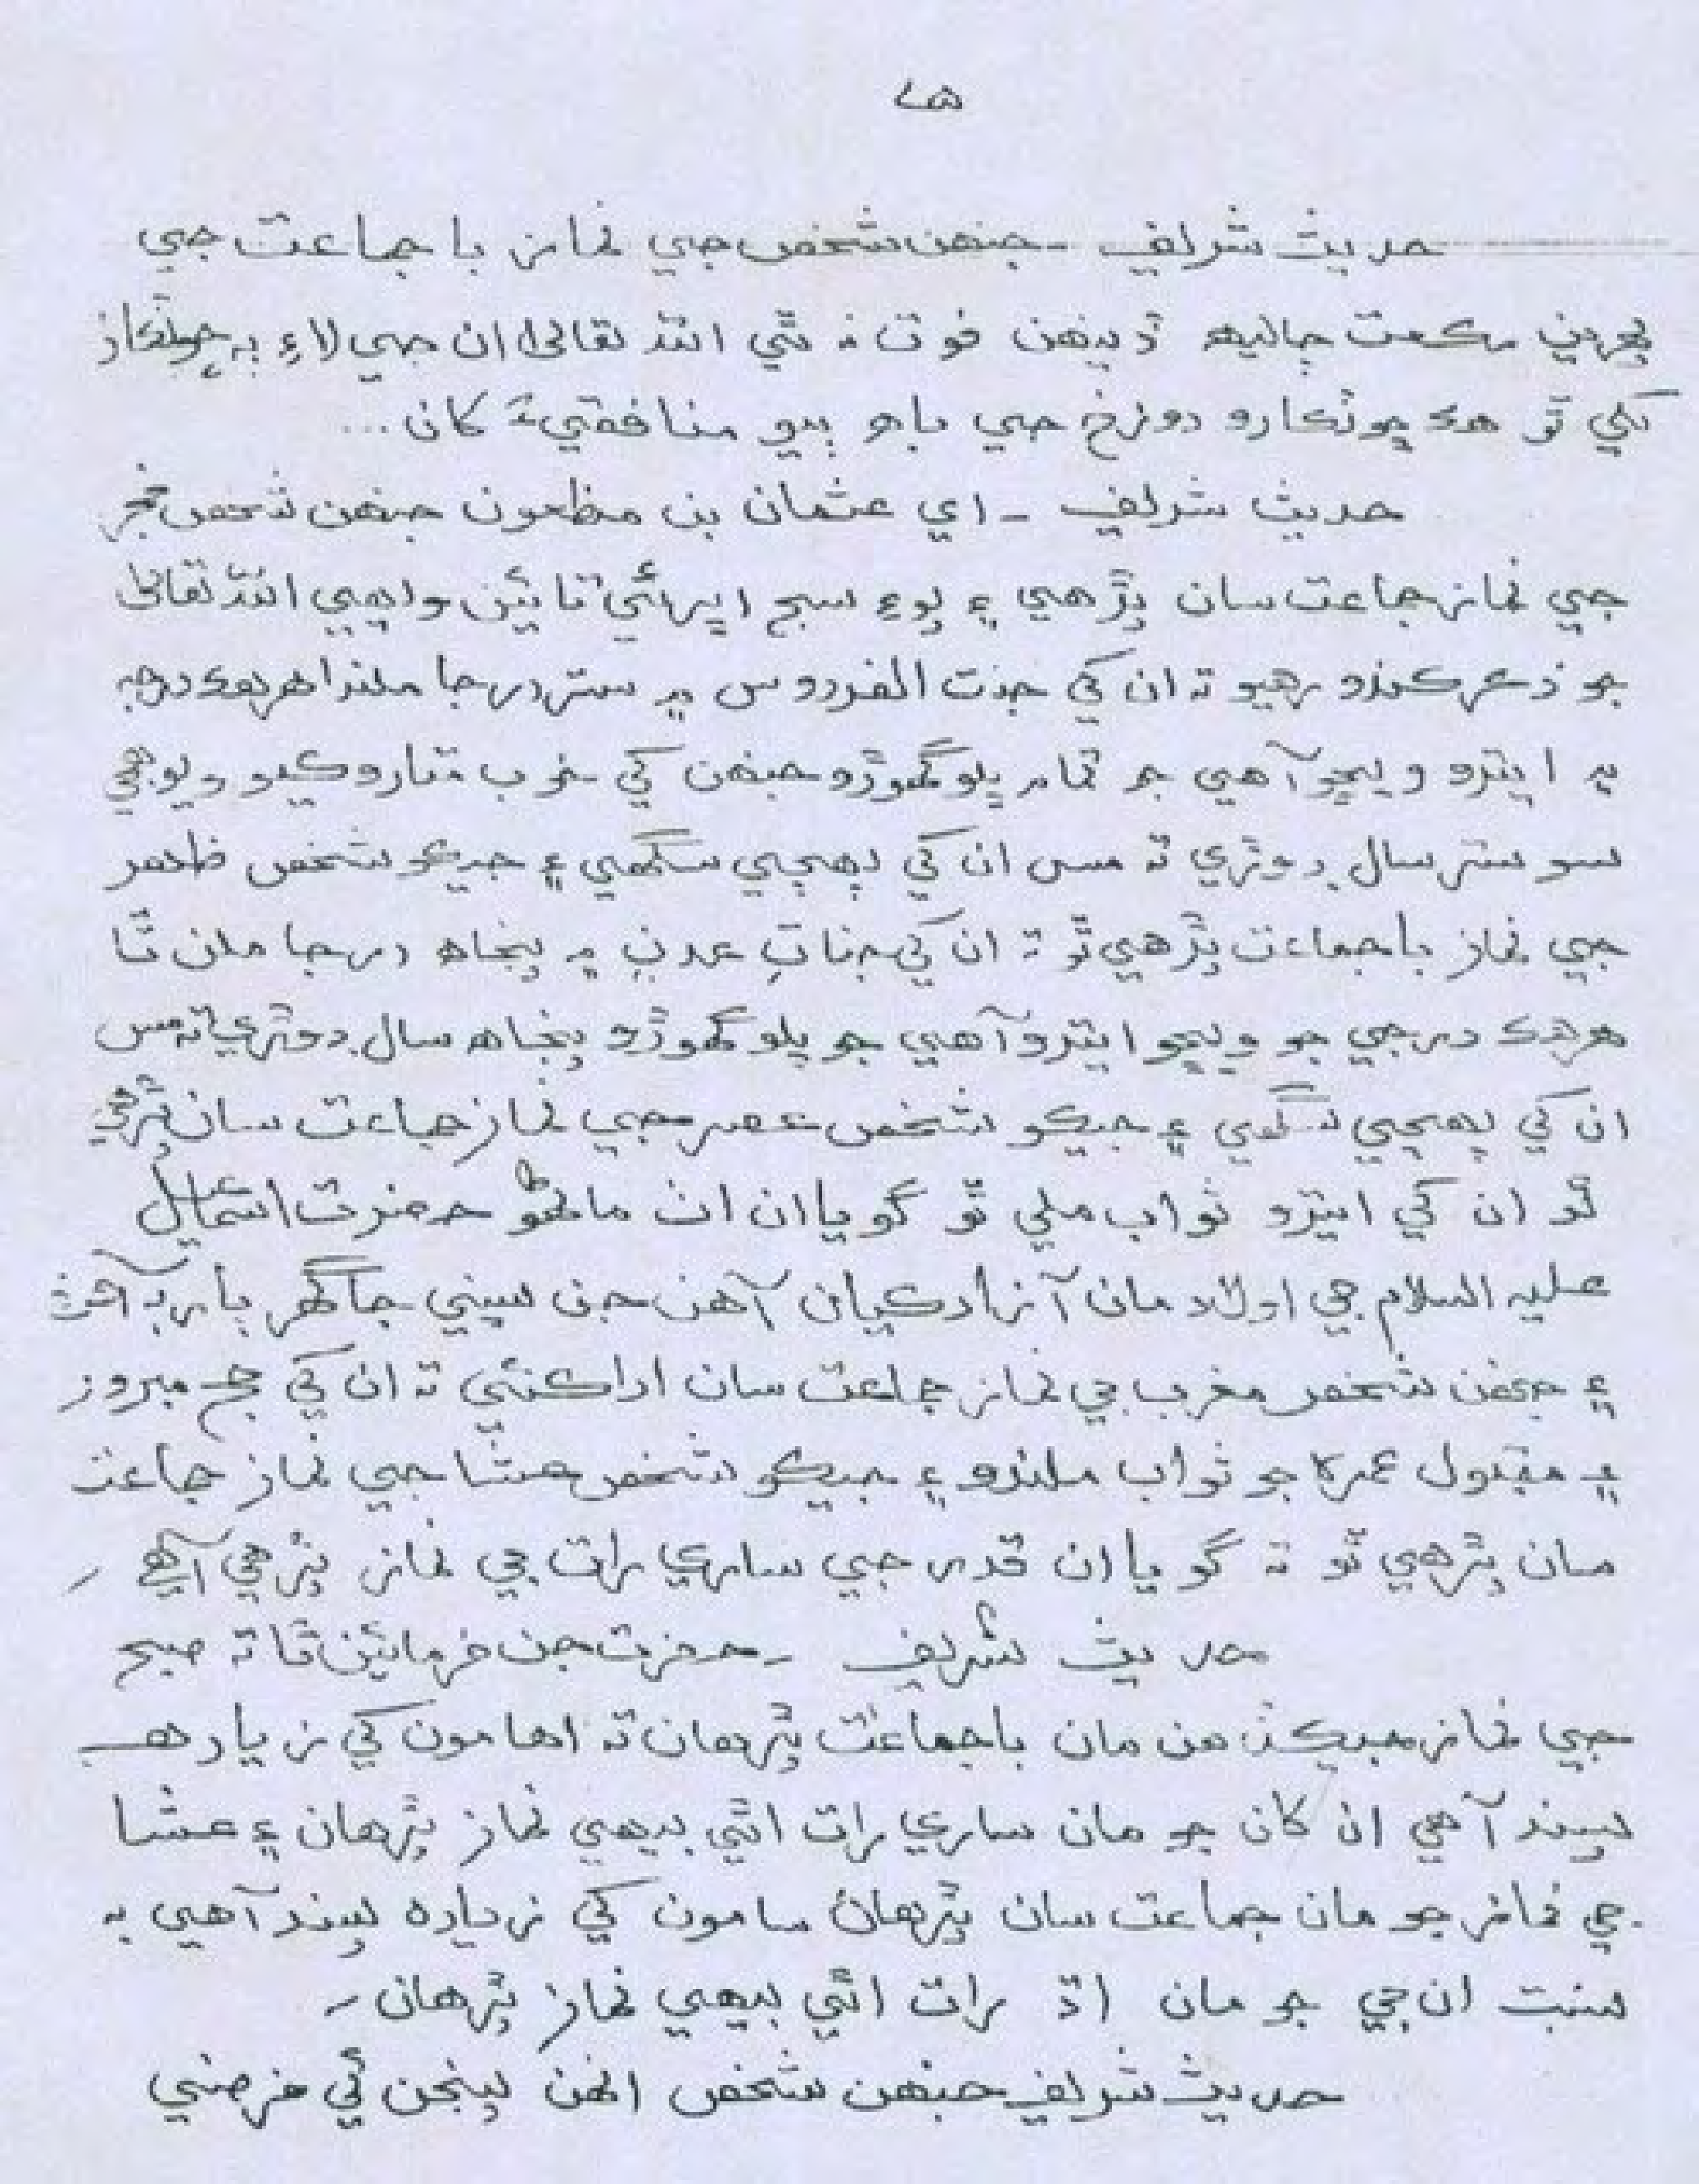 حديث شريف - جنهن شخص جي نماز با جماعت جي
پهرين رڪعت چاليهه ڏينهن فوت نه ٿي الله تعالى ان جي لاءِ ٻه
لکي ٿو هڪ ڇوٽڪارو دوزخ جي باهه ٻيو منافقيءَ کان ...
حديث شريف - اي عثمان بن مظعون جنهن شخص فجر
جي نماز جماعت سان پڙهي ۽ پوءِ سج اڀرڻ تائين ويهي الله تعالى
جو ذڪر ڪندو رهيو ته ان کي جنت الفردوس ۾ ستر درجا ملندا هر هڪ درجه
۾ ايترو ويڇو آهي جو تمام ڀلو گهوڙو جنهن کي خوب تيارو ڪيو ويو هجي
سو ستر سال ڊوڙي ته مس ان کي پهچي سگهي ۽ جيڪو شخص ظهر
جي نماز باجماعت پڙهي ٿو ته ان کي جنات عدن ۾ پنجاهه درجا ملن ٿا
هر هڪ درجي جو ويڇو ايترو آهي جو ڀلو گهوڙو پنجاهه سال ڊوڙي ته مس
ان کي پهچي سگهي ۽ جيڪو شخص عصر جي نماز جماعت سان پڙهي
ٿو ان کي ايترو ثواب ملي ٿو گويا ان اٺ ماڻهو حضرت اسماعيل
عليه السلام جي اولاد مان آزاد ڪيان آهن جن سڀني جا گهر ٻار به آهن
۽ جنهن شخص مغرب جي نماز جماعت سان ادا ڪئي ته ان کي حج مبرور
۽ مقبول عمره جو ثواب ملندو ۽ جيڪو شخص عشا جي نماز جماعت
سان پڙهي ٿو ته گويا ان قدر جي ساري رات جي نماز پڙهي آهي -
حديث شريف - حضرت جن فرمائين ٿا ته صبح
جي نماز جيڪڏهن مان باجماعت پڙهان ته اها مون کي زياده
پسند آهي ان کان جو مان ساري رات اٿي بيهي نماز پڙهان ۽ عشا
جي نماز جو مان جماعت سان پڙهان سا مون کي زياده پسند آهي به
نسبت ان جي جو مان اڌ رات اٿي بيهي نماز پڙهان -
حديث شريف جنهن شخص انهن پنجن ئي فرضي